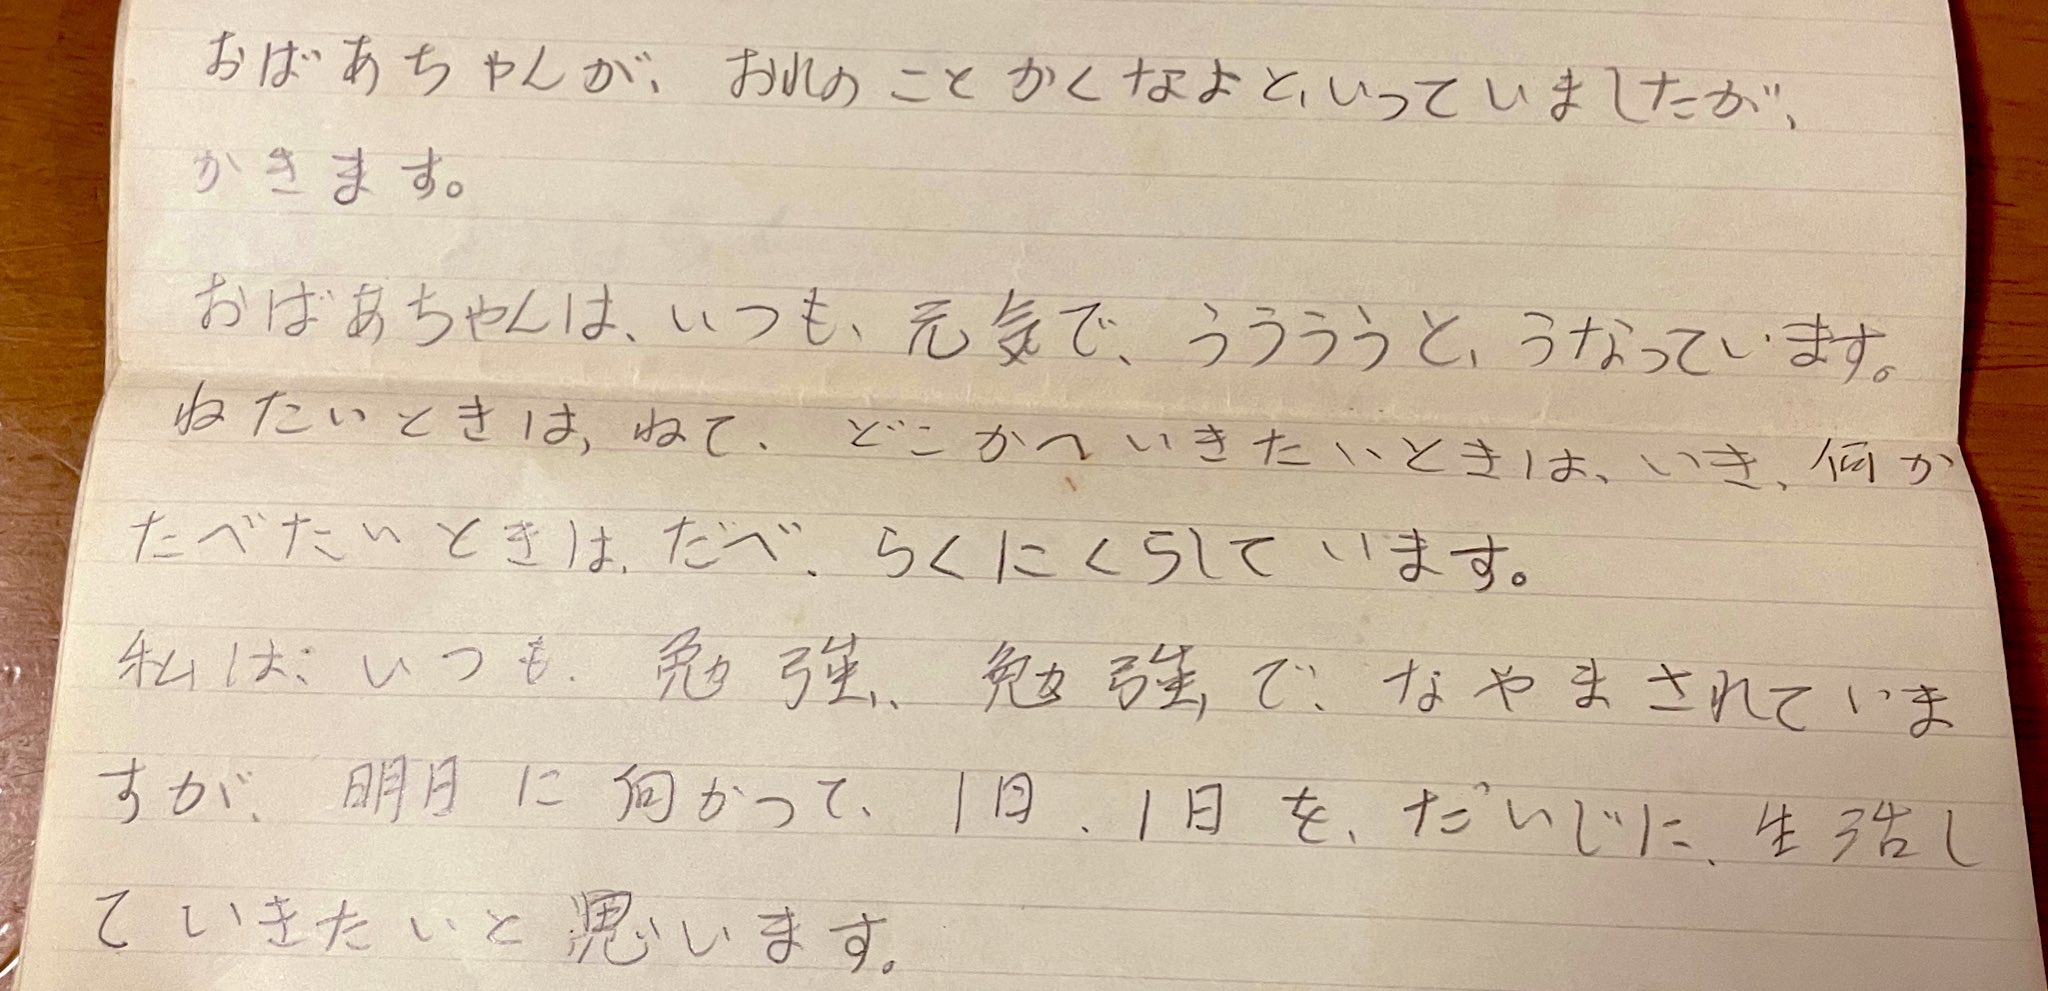 おばあちゃんが、おれのことかくなよと、いっていましたが、
かきます。
おばあちゃんは、いつも、元気で、うううう​と、うなっています。
ねたいときは、ねて、どこかへいきたいときは、いき、何か
たべたいときは、だべ、らくにくらしています。
私は、いつも、勉強、勉強、で、なやまされていま
すが、明月に何かって、1日、1日を、だいじに、生活し
ていきたいと思います。